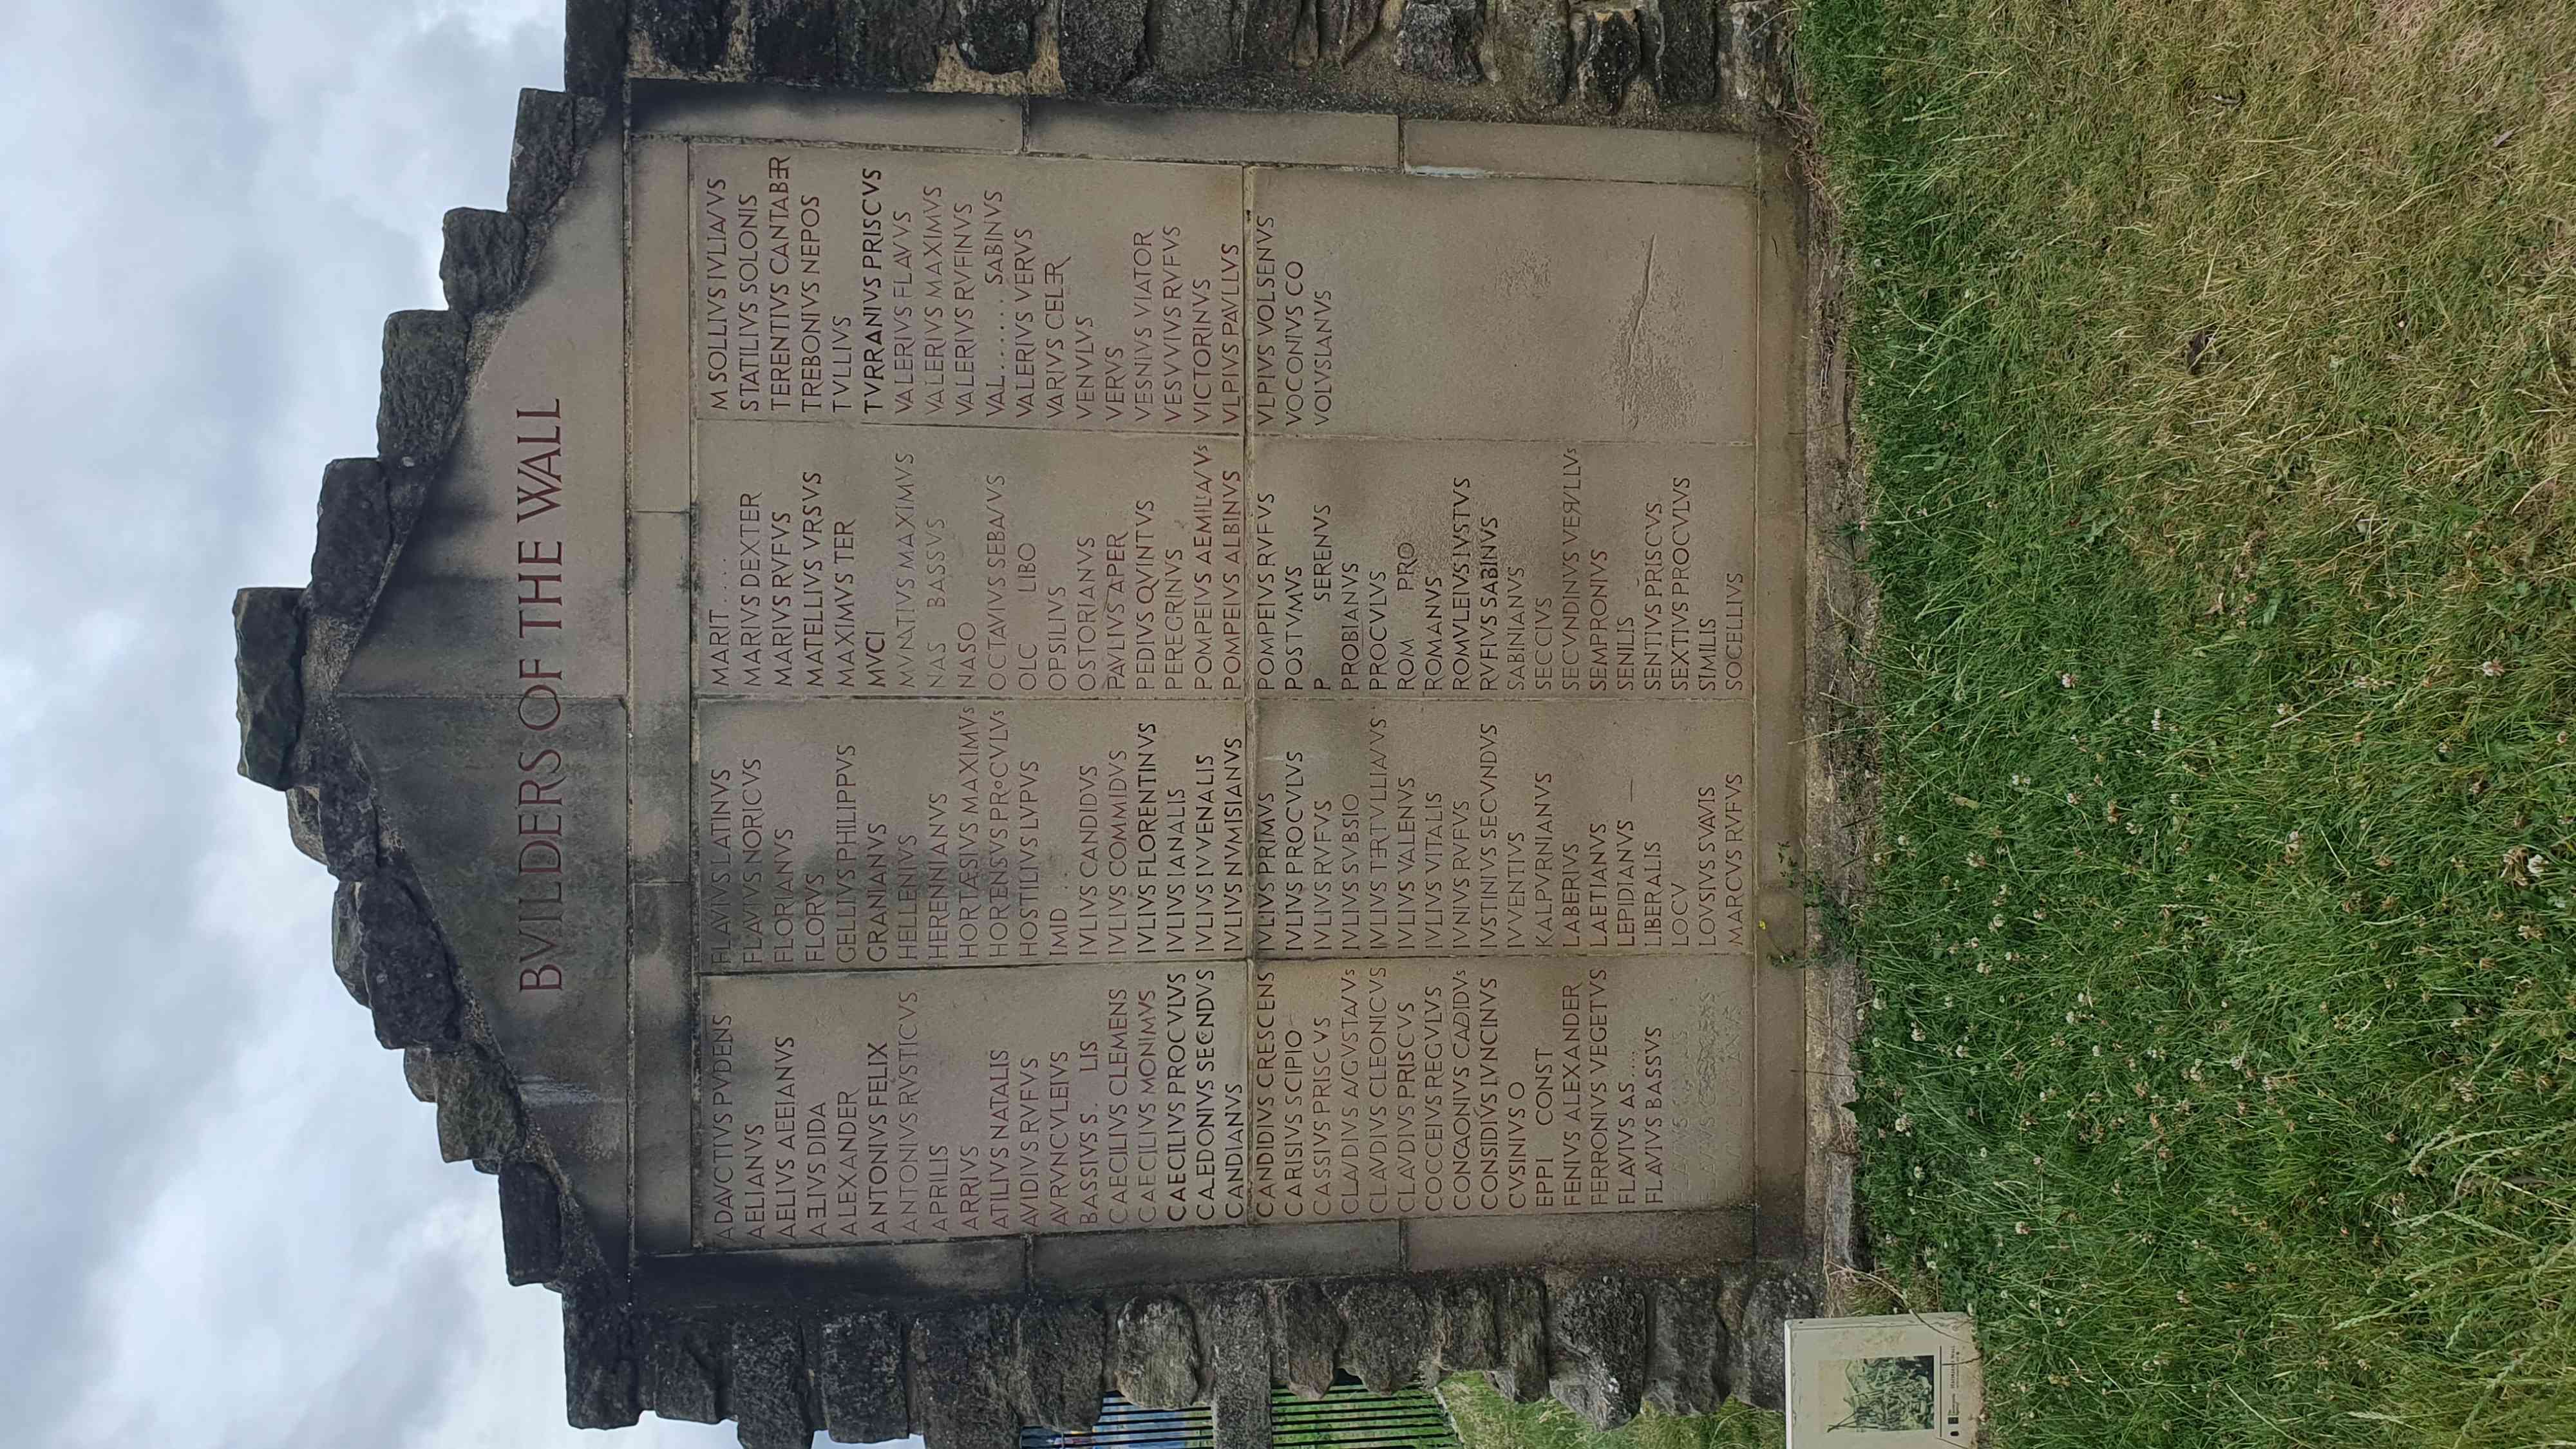 BVILDERS OF THE WALL
ADAVCTIVS PVDENS
AELIANVS
AELIVS AEEIANVS
AELIVS DIDA
ALEXANDER
ANTONIVS FELIX
ANTONIVS RVSTICVS
APRILIS
ARRIVS
ATILIVS NATALIS
AVIDIVS RVFVS
AVRVNCVLEIVS
BASSIVS S. LIS
CAECILIVS CLEMENS
CAECILIVS MONIMVS
CAECILIVS PROCVLVS
CALEDONIVS SECNDVS
CANDIANVS
CANDIDIVS CRESCENS
CARISIVS SCIPIO
CASSIVS PRISCVS
CLAVDIVS AVGVSTAVVS
CLAVDIVS CLEONICVS
CLAVDIVS PRISCVS
COCCEIVS REGVLVS
CONCAONIVS CADIDVS
CONSIDIVS IVNCINVS
CVSINIVS O
EPPI CONST
FENIVS ALEXANDER
FERRONIVS VEGETVS
FLAVIVS AS....
FLAVIVS BASSVS
FLAVIVS LATINVS
FLAVIVS NORICVS
FLORIANVS
FLORVS
GELLIVS PHILIPPVS
GRANIANVS
HELLENIVS
HERENNIANVS
HORTÆSIVS MAXIMVS
HORTENSVS PROCVLVS
HOSTILIVS LVPVS
IMD . .
IVLIVS CANDIDVS
IVLIVS COMMIDVS
IVLIVS FLORENTINVS
IVLIVS IANALIS
IVLIVS IVVENALIS
IVLIVS NVMISIANVS
IVLIVS PRIMVS
IVLIVS PROCVLVS
IVLIVS RVFVS
IVLIVS SVBSIO
IVLIVS TERTVLLIAVVS
IVLIVS VALENVS
IVLIVS VITALIS
IVNIVS RVFVS
IVSTINIVS SECVNDVS
IVVENTIVS
KALPVRNIANVS
LABERIVS
LAETIANVS
LEPIDIANVS
LIBERALIS
LOCV
LOVSIVS SVAVIS
MARCVS RVFVS
MARIT ....
MARIVS DEXTER
MARIVS RVFVS
MATELLIVS VRSVS
MAXIMVS TER
MVCI
MVNATIVS MAXIMVS
NAS BASSVS
NASO
OCTAVIVS SEBAVVS
OLC LIBO
OPSILIVS
OSTORIANVS
PAVLIVS APER
PEDIVS QVINTVS
PEREGRINVS
POMPEIVS AEMILIAVVS
POMPEIVS ALBINVS
POMPEIVS RVFVS
POSTVMVS
P SERENVS
PROBIANVS
PROCVLVS
ROM PRO
ROMANVS
ROMVLEIVS IVSTVS
RVFIVS SABINVS
SABINIANVS
SECCIVS
SECVNDINVS VERVLLVS
SEMPRONIVS
SENILIS
SENTIVS PRISCVS
SEXTIVS PROCVLVS
SIMILIS
SOCELLIVS
M SOLLIVS IVLIAVVS
STATILIVS SOLONIS
TERENTIVS CANTABER
TREBONIVS NEPOS
TVLLIVS
TVRRANIVS PRISCVS
VALERIVS FLAVVS
VALERIVS MAXIMVS
VALERIVS RVFINVS
VAL....... SABINVS
VALERIVS VERVS
VARIVS CELER
VENVLVS
VERVS
VESNIVS VIATOR
VESVVIVS RVFVS
VICTORINVS
VLPIVS PAVLLVS
VLPIVS VOLSENVS
VOCONIVS CO
VOLVSIANVS